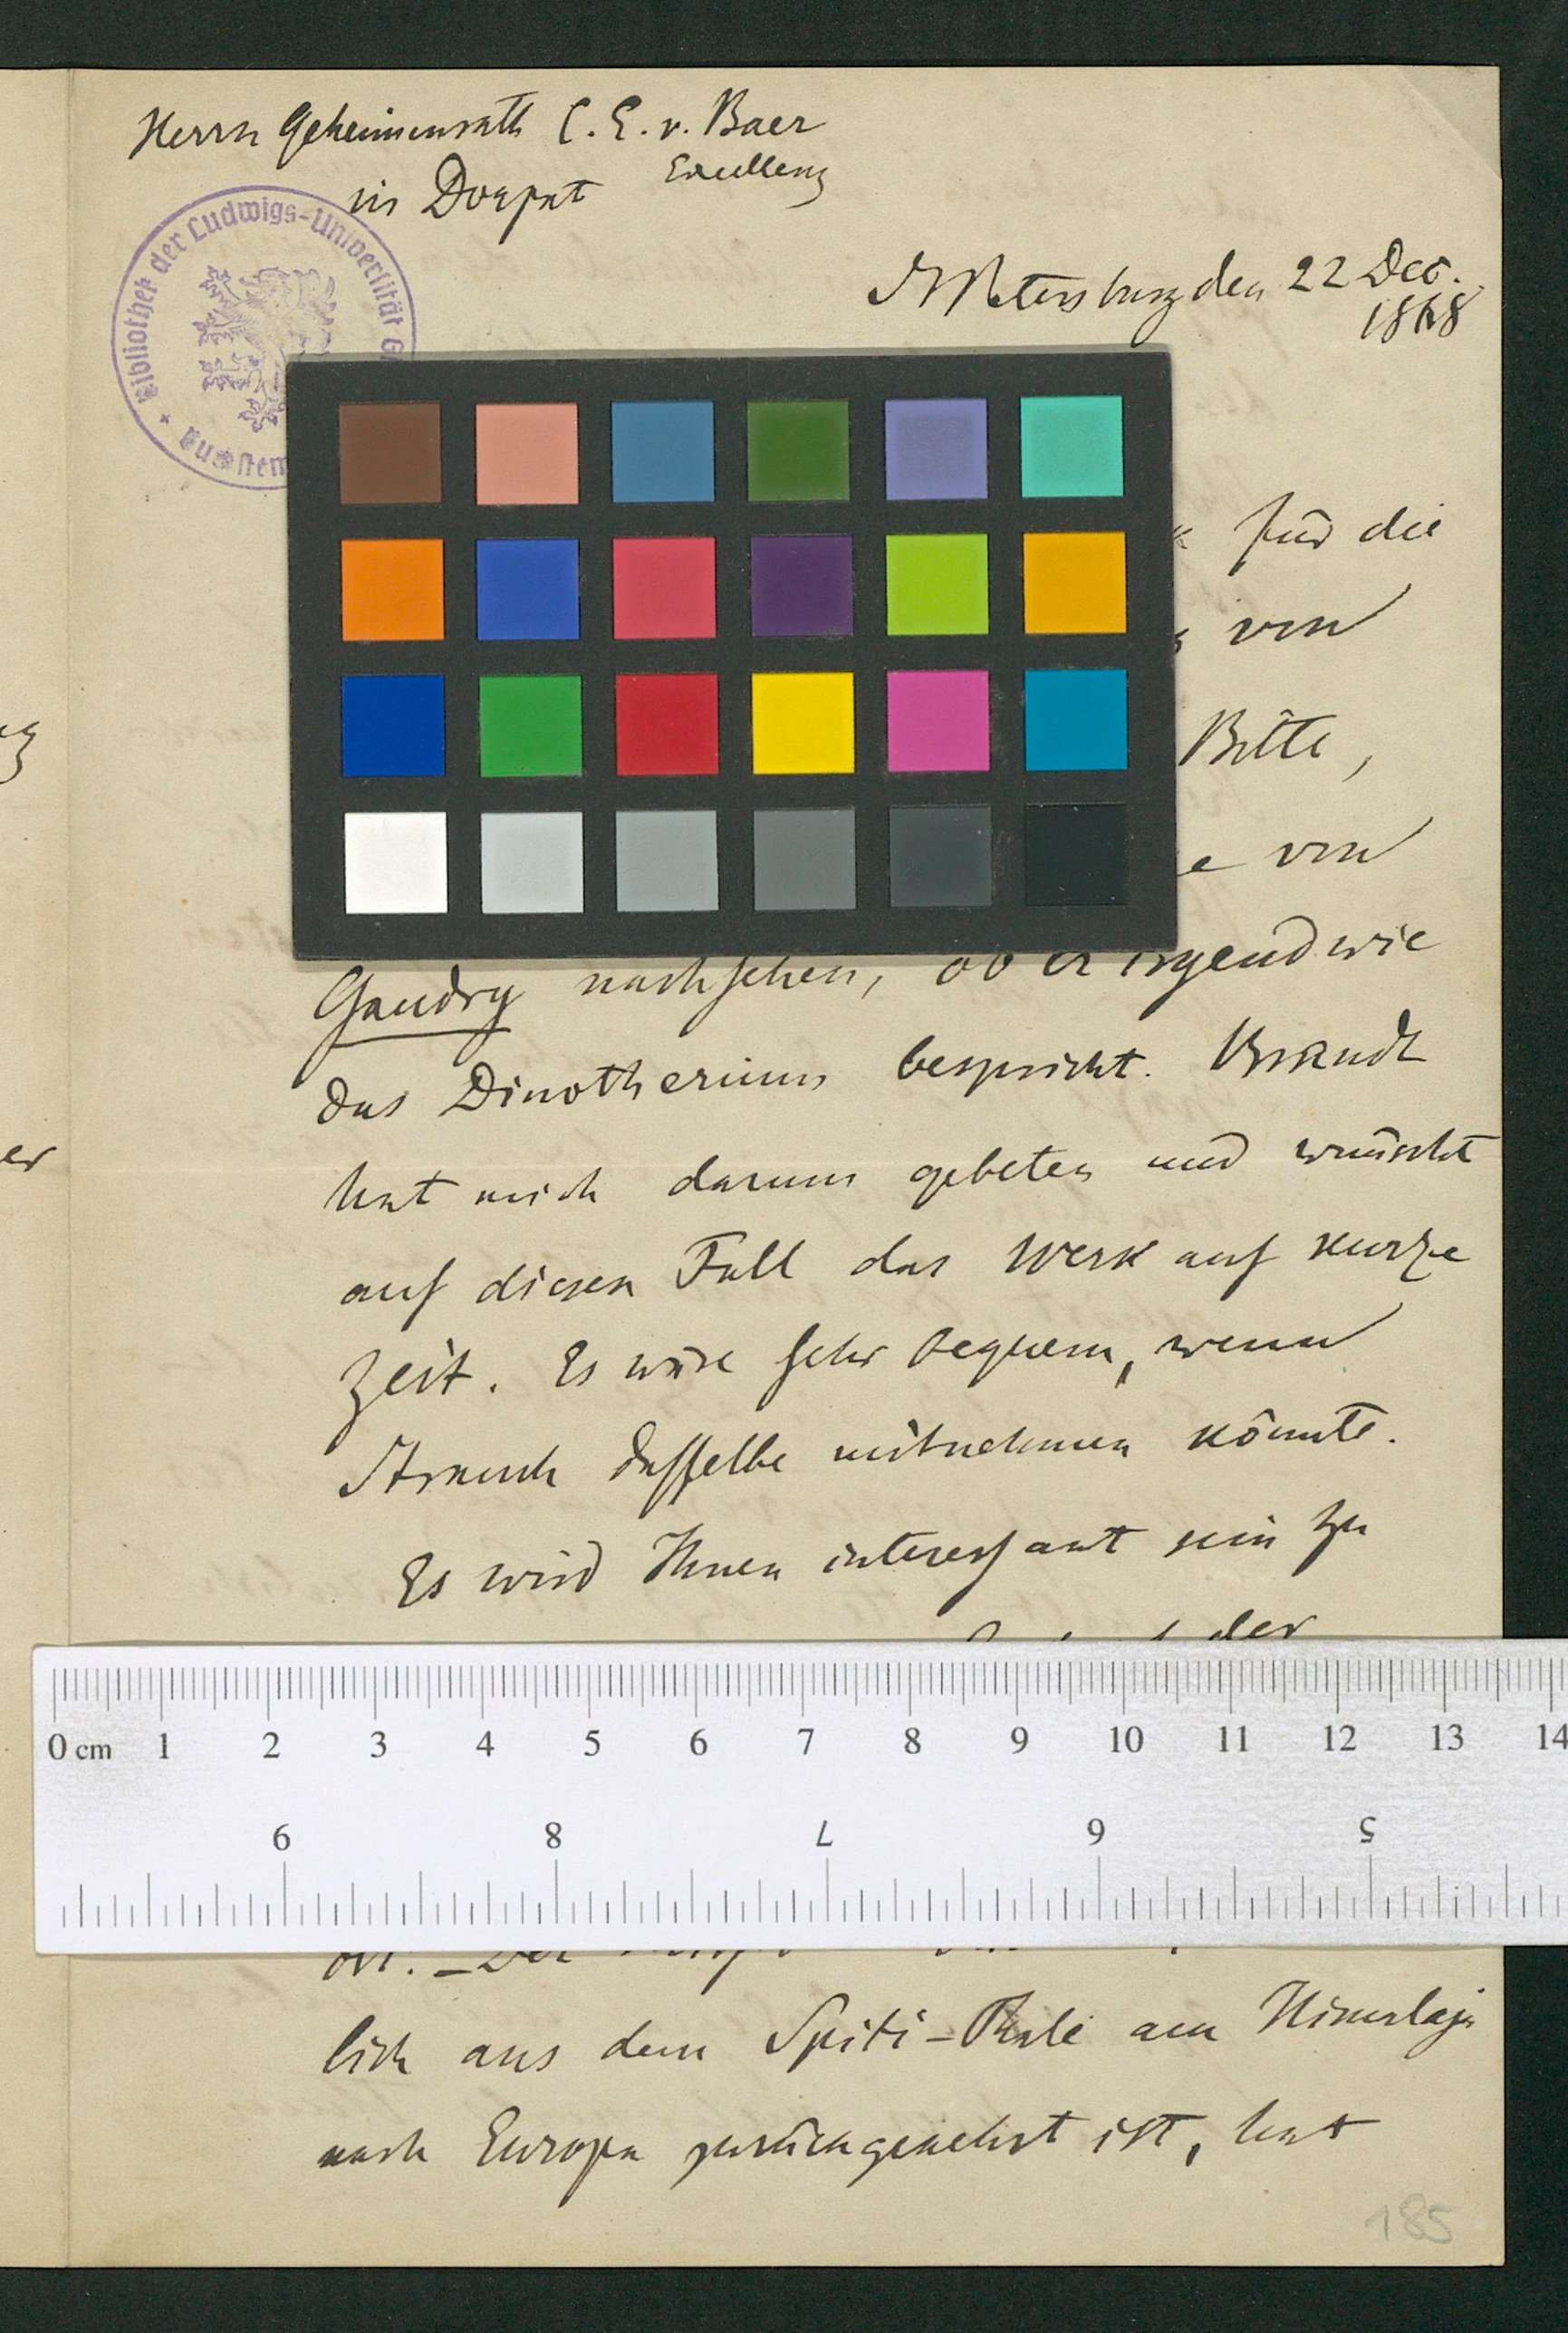 Herrn Geheimenrath C. E. v. Baer
Excellenz
in Dorpat
Bibliothek der Ludwigs-Universität
St Petersburg den 22 Dec.
1868
für die
von
Bitte,
von
Gaudry nachsehen, ob er irgendwie
das Dinotherium bespricht. Brandt
hat mich darum gebeten und wünscht
auf diesen Fall das Werk auf kurze
Zeit. Es wäre sehr bequem, wenn
Strauch dasselbe mitnehmen könnte.
Es wird Ihnen interessant sein zu
der
0 cm 1 2 3 4 5 6 7 8 9 10 11 12 13 14
9 8 7 6 5
lich aus dem Spiti-Thale am Himalaja
nach Europa zurückgekehrt ist, hat
185